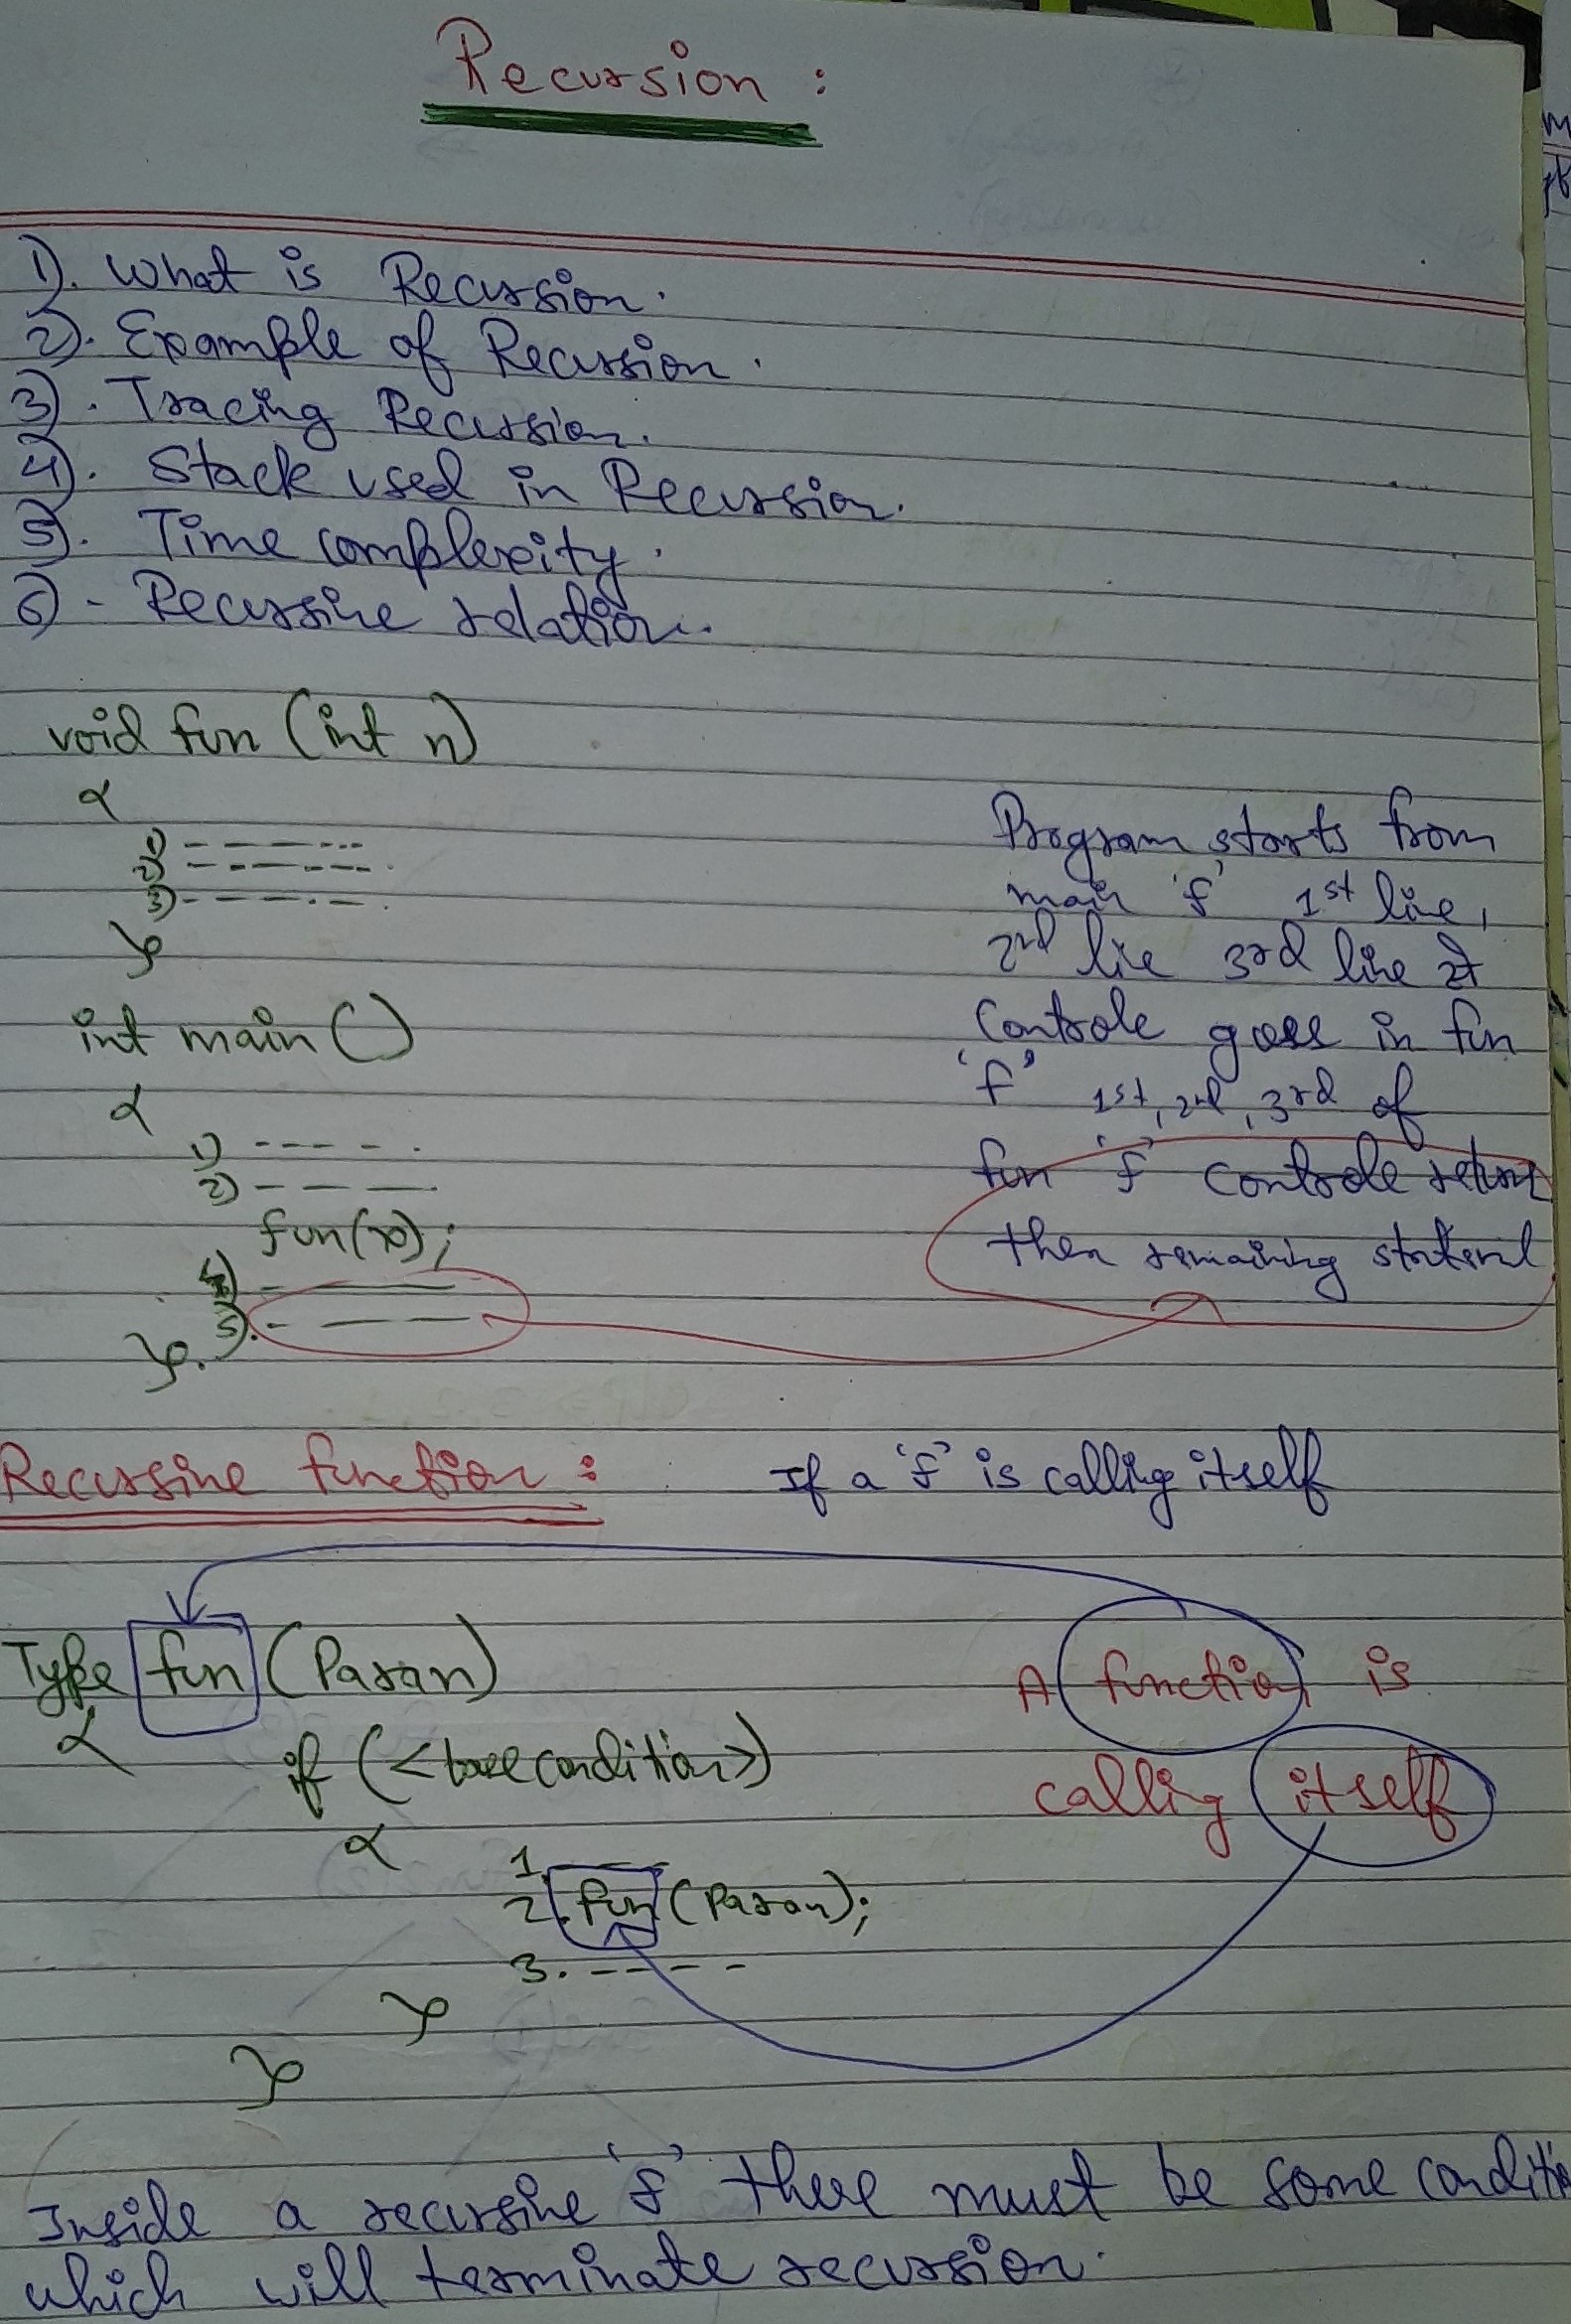 Recursion :
1). What is Recursion.
2). Example of Recursion.
3). Tracing Recursion.
4). Stack used in Recursion.
5). Time complexity.
6) - Recursive relation.
void fun (int n)
{
1) - - - - -
2) - - - - -
3) - - - - -
}
int main ()
{
1) - - - - .
2) - - - .
fun(x);
4) - - -
5). - - -
}.
Program starts from
main 'f' 1st line,
2nd lie 3rd line से
Controle goes in fun
'f' 1st, 2nd, 3rd of
fun 'f' controle return
then remaining
Recursive function : If a 'f' is calling itself
Type fun (Param)
{
if (<base condition>)
{
1. - - -
2. fun (Param);
3. - - - -
}
}
A function is
calling itself
Inside a recursive 'f' there must be some conditio
which will terminate recursion.